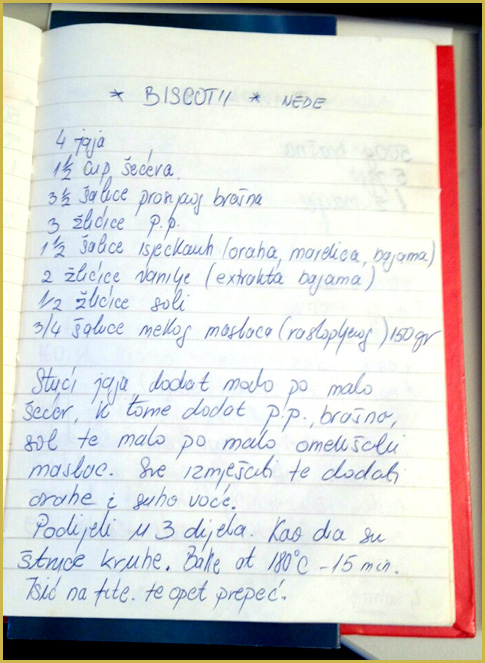 * BISCOTII * NEDE
4 jaja
1½ cup šećera
3½ šalice prosijanog brašna
3 žličice p.p.
1½ šalice isjeckanih (oraha, marelica, bajama)
2 žličice vanilije (extrakta bajama)
1/2 žličice soli
3/4 šalice mekog maslaca (rastopljenog) 150 gr
Stući jaja, dodat malo po malo
šećer, k tome dodat p.p., brašno,
sol te malo po malo omekšali
maslac. Sve izmješati te dodati
orahe i suho voće.
Podijeli u 3 dijela. Kao da su
štruce kruha. Bake at 180°C - 15 min.
Isić na fite. te opet prepeć.